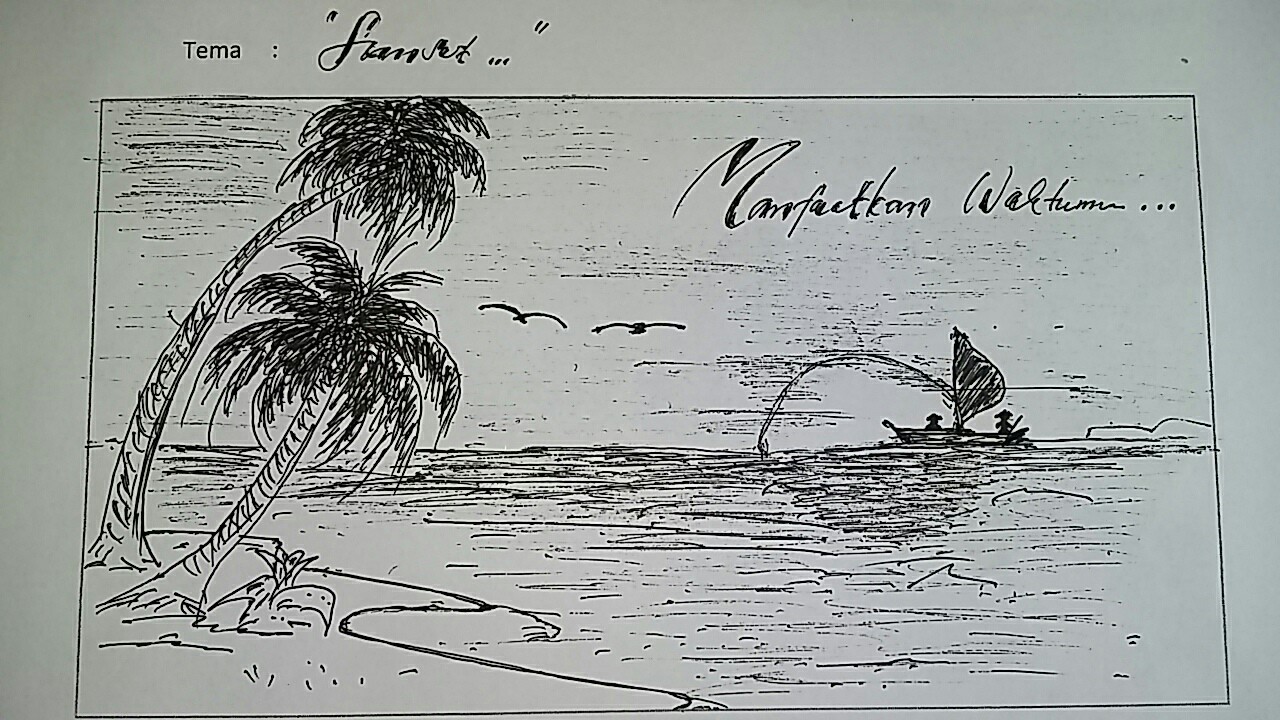 Tema : "Sunset..."
Manfaatkan Waktumu...